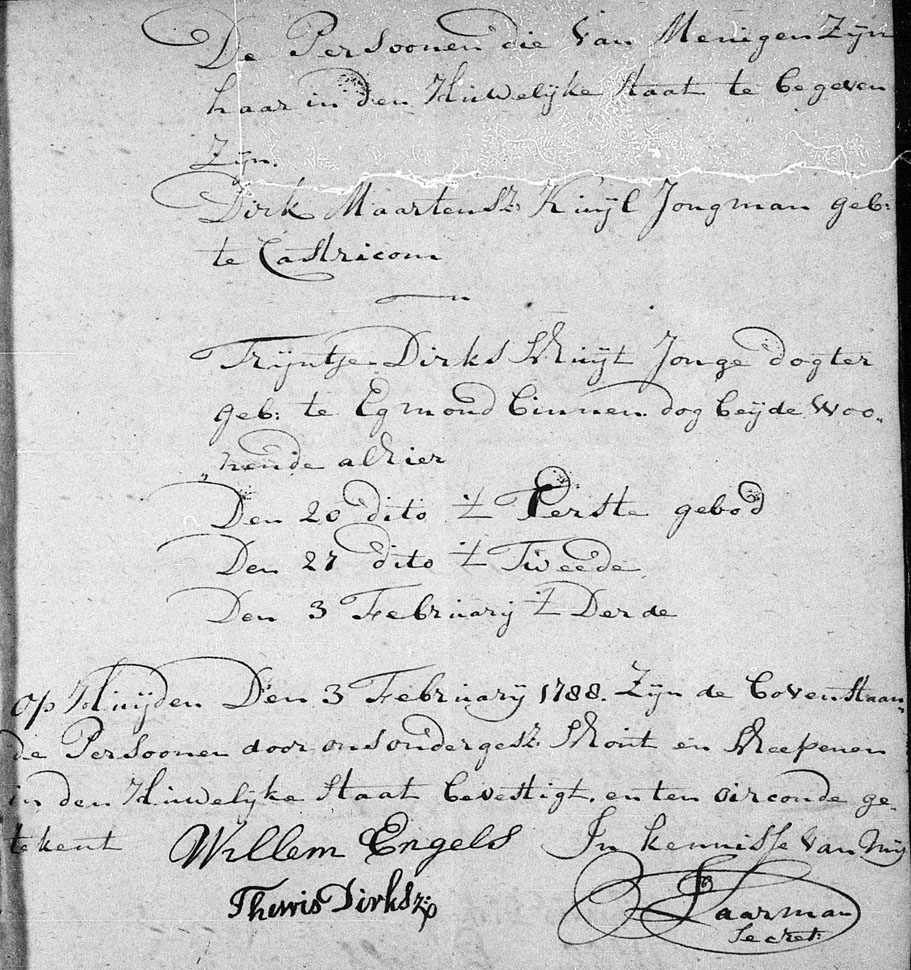 De Persoonen die van Meningen Zijn
haar in den Huwelijke Staat te begeven
Zijn.
Dirk Maartensz: Kuijl Jongman geb:
te Castricom
Trijntje Dirks Schuijt Jonge dogter
geb: te Egmond binnen dog beijde woo„
„nende alhier
Den 20 dito 't Eerste gebod
Den 27 dito 't Tweede
Den 3 February 't Derde
op Huijden Den 3 February 1788. Zijn de bovenstaan„
de Persoonen door ons ondergesz: Schout en Scheepenen
in den Huwelijke Staat bevestigt, en ten oirconde ge„
tekent Willem Engels In kennisse van mij
Thewis Dirksz: Paarman
Secret: